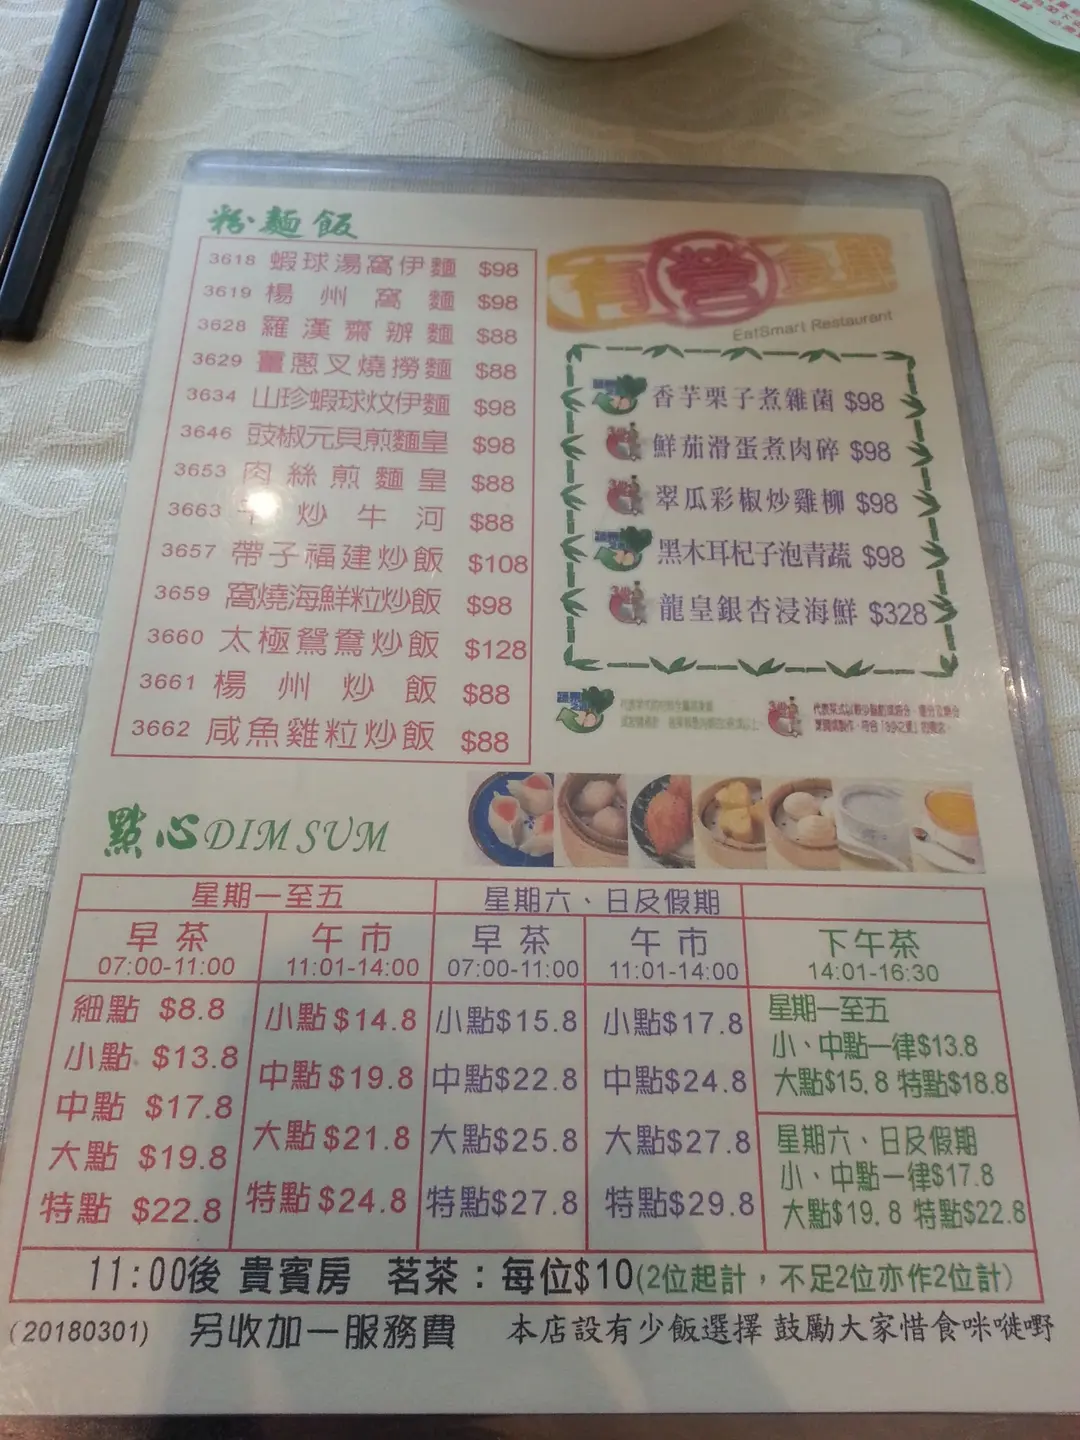 粉麵飯
3618 蝦球湯窩伊麵 $98
3619 楊州窩麵 $98
3628 羅漢齋辦麵 $88
3629 薑蔥叉燒撈麵 $88
3634 山珍蝦球炆伊麵 $98
3646 豉椒元貝煎麵皇 $98
3653 肉絲煎麵皇 $88
3663 干炒牛河 $88
3657 帶子福建炒飯 $108
3659 窩燒海鮮粒炒飯 $98
3660 太極鴛鴦炒飯 $128
3661 楊州炒飯 $88
3662 咸魚雞粒炒飯 $88
有營食肆
EatSmart Restaurant
香芋栗子煮雜菌 $98
鮮茄滑蛋煮肉碎 $98
翠瓜彩椒炒雞柳 $98
黑木耳杞子泡青蔬 $98
龍皇銀杏浸海鮮 $328
點心DIM SUM
星期一至五
早茶
07:00-11:00
細點 $8.8
小點 $13.8
中點 $17.8
大點 $19.8
特點 $22.8
午市
11:01-14:00
小點$14.8
中點$19.8
大點$21.8
特點$24.8
星期六、日及假期
早茶
07:00-11:00
小點$15.8
中點$22.8
大點$25.8
特點$27.8
午市
11:01-14:00
小點$17.8
中點$24.8
大點$27.8
特點$29.8
下午茶
14:01-16:30
星期一至五
小、中點一律$13.8
大點$15.8 特點$18.8
星期六、日及假期
小、中點一律$17.8
大點$19.8 特點$22.8
11:00後 貴賓房 茗茶：每位$10(2位起計，不足2位亦作2位計)
(20180301) 另收加一服務費 本店設有少飯選擇 鼓勵大家惜食咪嘥嘢